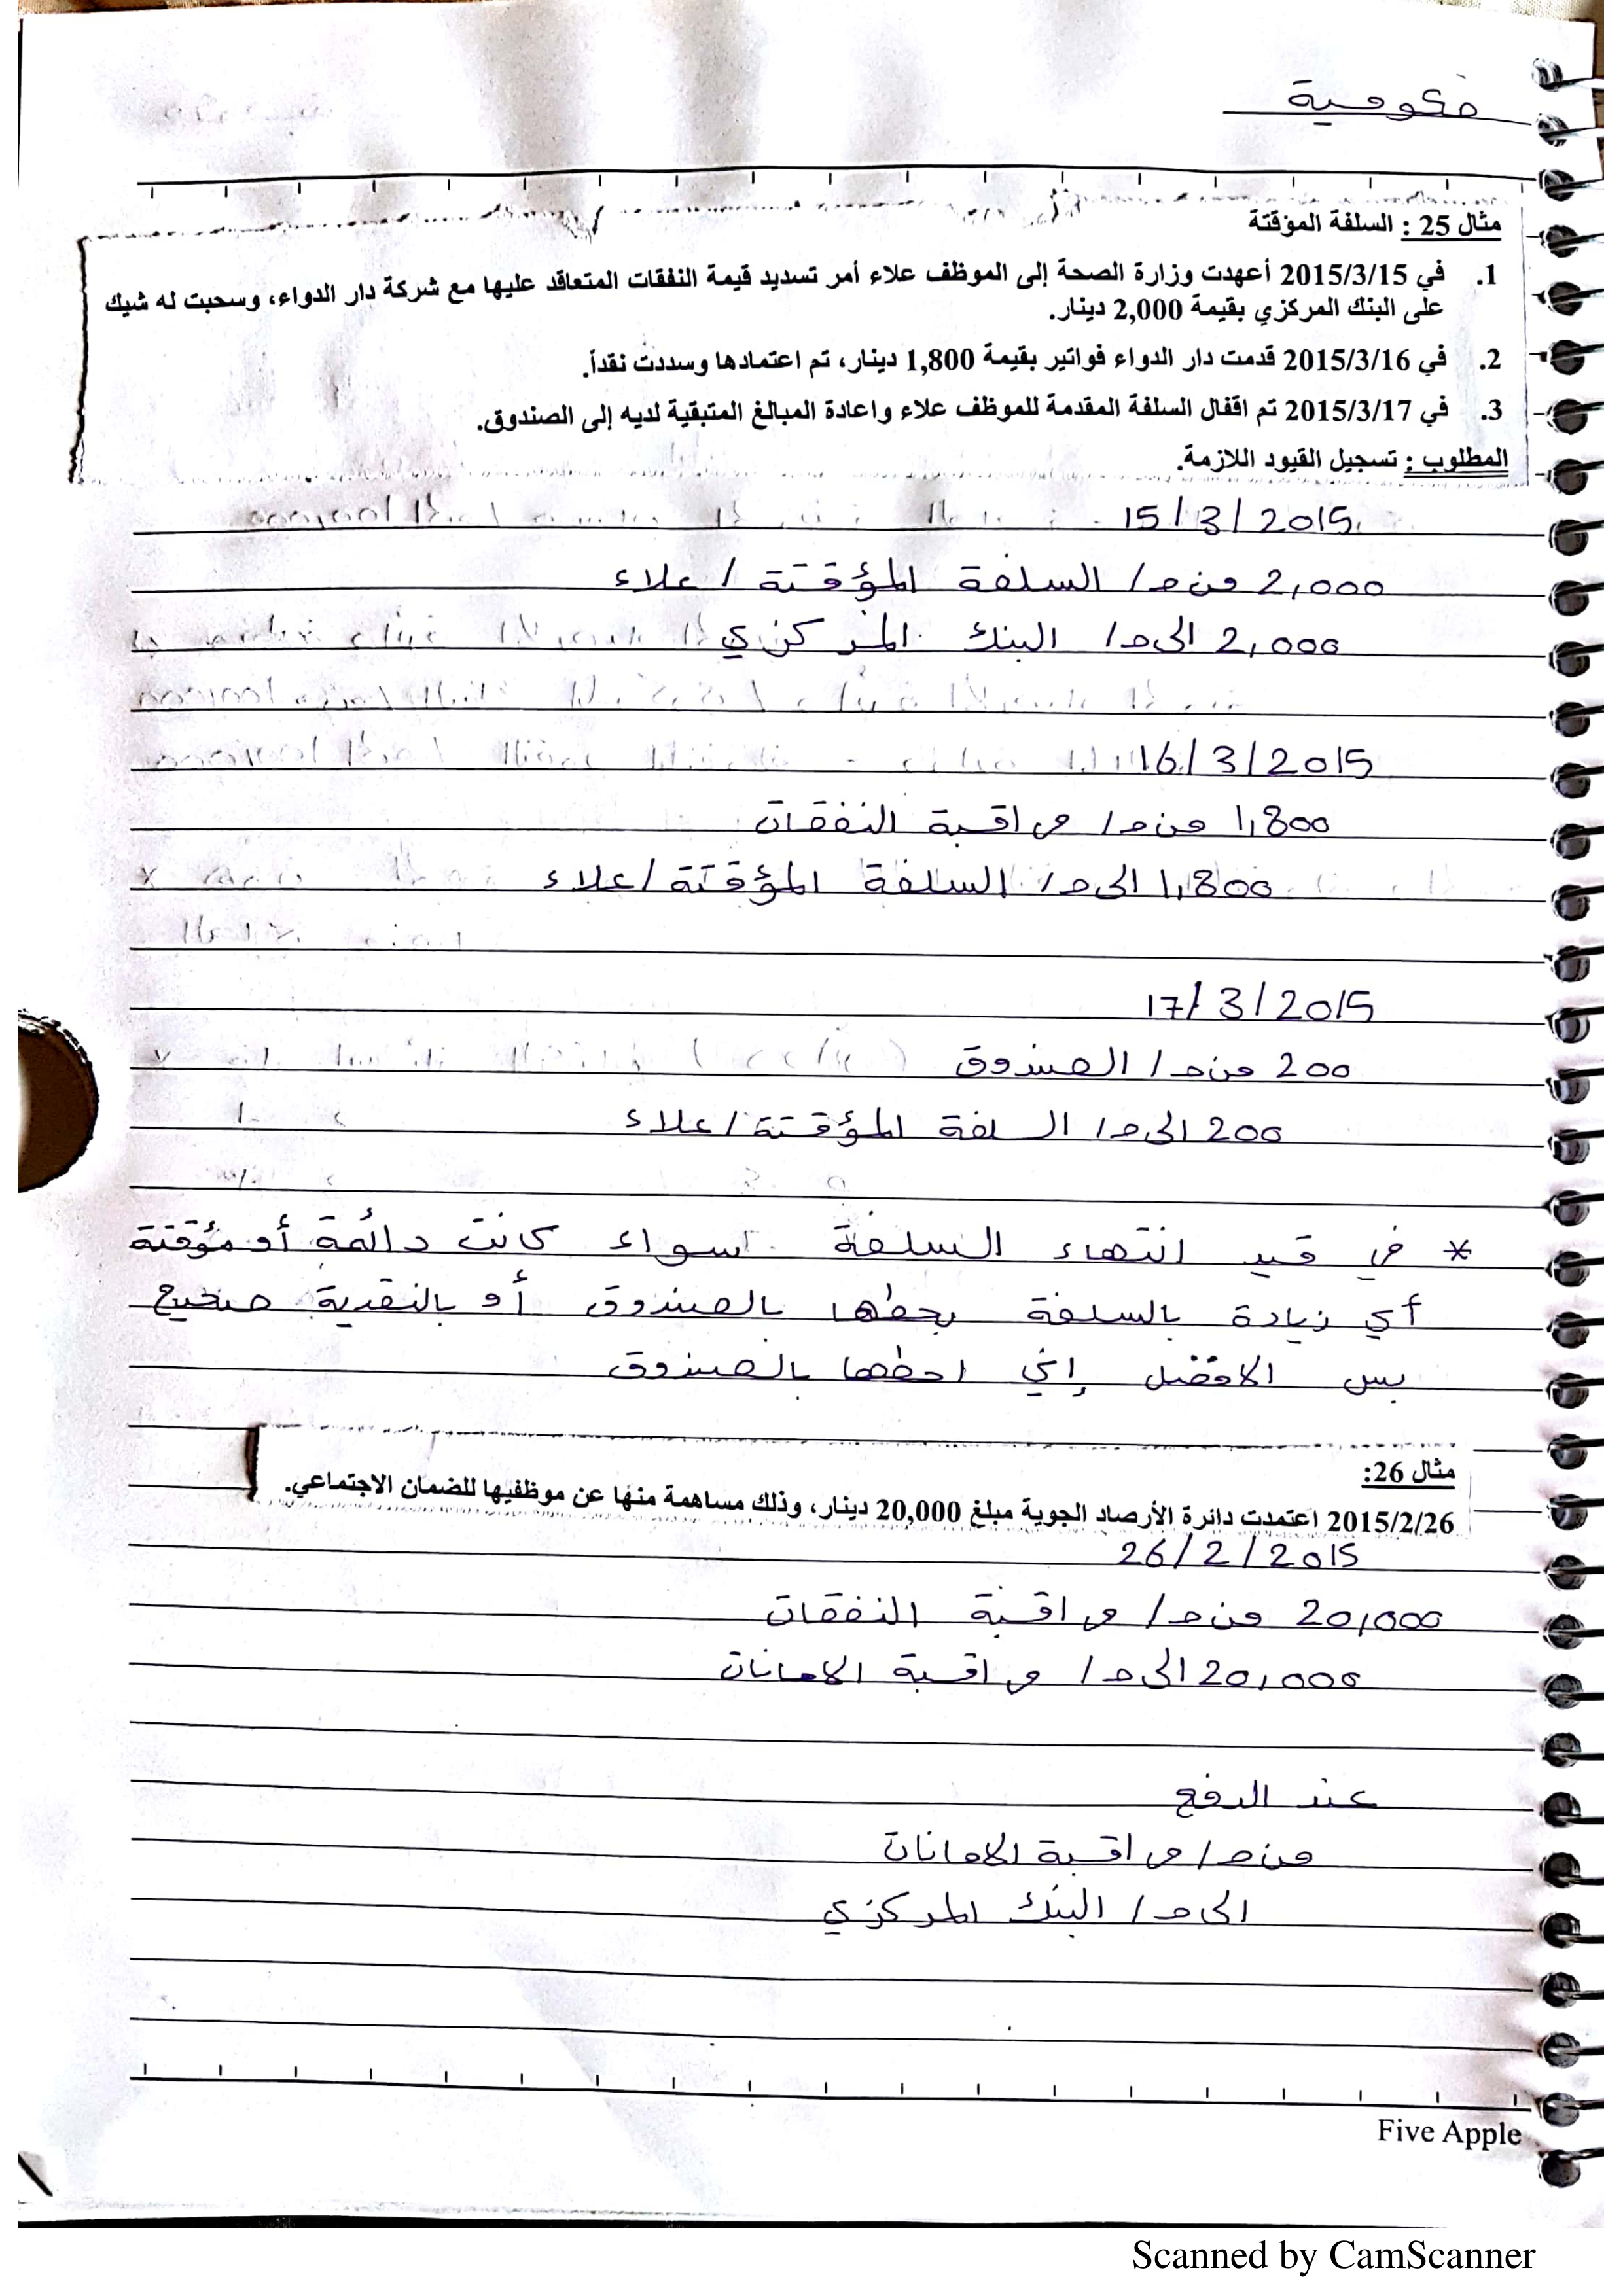 حكومية
مثال 25 : السلفة المؤقتة
1. في 2015/3/15 أعهدت وزارة الصحة إلى الموظف علاء أمر تسديد قيمة النفقات المتعاقد عليها مع شركة دار الدواء، وسحبت له شيك
على البنك المركزي بقيمة 2,000 دينار.
2. في 2015/3/16 قدمت دار الدواء فواتير بقيمة 1,800 دينار، تم اعتمادها وسددت نقداً.
3. في 2015/3/17 تم اقفال السلفة المقدمة للموظف علاء واعادة المبالغ المتبقية لديه إلى الصندوق.
المطلوب : تسجيل القيود اللازمة.
15/3/2015
2,000 من ح/ السلفة المؤقتة / علاء
2,000 الى ح/ البنك المركزي
16/3/2015
1,800 من ح/ مراقبة النفقات
1,800 الى ح/ السلفة المؤقتة/علاء
17/3/2015
200 من ح/ الصندوق
200 الى ح/ السلفة المؤقتة/علاء
* في قيد انتهاء السلفة سواء كانت دائمة أو مؤقتة
أي زيادة بالسلفة بحطها بالصندوق أو بالنقدية صحيح
بس الافضل إني احطها بالصندوق
مثال 26:
2015/2/26 اعتمدت دائرة الأرصاد الجوية مبلغ 20,000 دينار، وذلك مساهمة منها عن موظفيها للضمان الاجتماعي.
26/2/2015
20,000 من ح/ مراقبة النفقات
20,000 الى ح/ مراقبة الامانات
عند الدفع
من ح/ مراقبة الامانات
الى ح/ البنك المركزي
Five Apple
Scanned by CamScanner